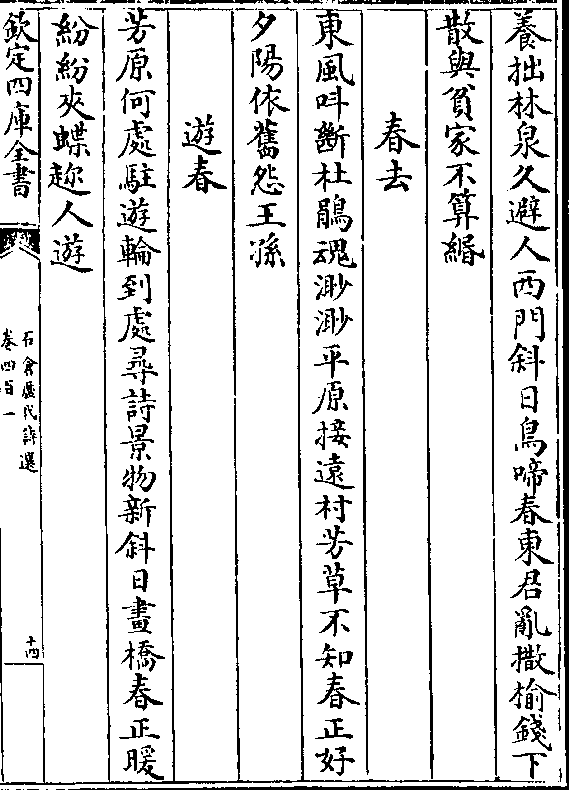 養拙林泉久避人西門斜日鳥啼春東君亂撒榆錢下
散與貧家不算緡
春去
東風呌斷杜鵑魂渺渺平原接遠村芳草不知春正好
夕陽依舊怨王孫
遊春
芳原何處駐遊輪到處尋詩景物新斜日畫橋春正暖
紛紛夾蝶趂人遊
欽定四庫全書
石倉歷代詩選
卷四百一
十四